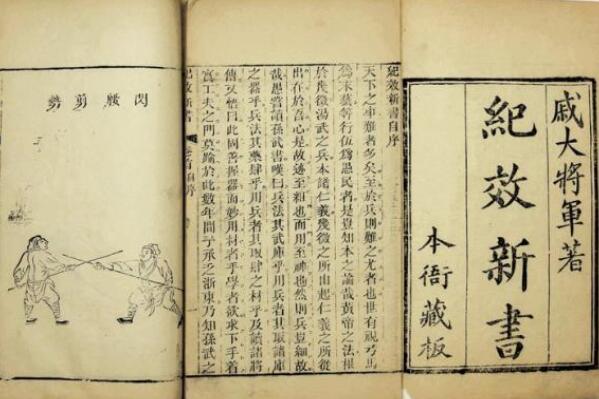 戚大將軍著
紀效新書
本衙藏板
紀效新書自序
天下之事難者多矣至於兵則難之尤者也世有視弓馬
為末藝等行伍爲愚民者是豈知本之論哉黃帝之法根
於幾微湯武之兵本諸仁義幾微之所由起仁義之所從
出在於吾心是故迹至粗也而用至神也然則兵豈細故
哉愚嘗讀孫武書嘆曰兵法其武庫乎用兵者其取諸庫
之器乎兵法其藥肆乎用兵者其取肆之材乎及讀諸將
傳又悟曰此固善握器而妙用材者乎學者欲求下手着
實工夫之門莫踰於此數年間予承乏浙東乃知孫武之
紀效新書 自序
閃腰剪勢